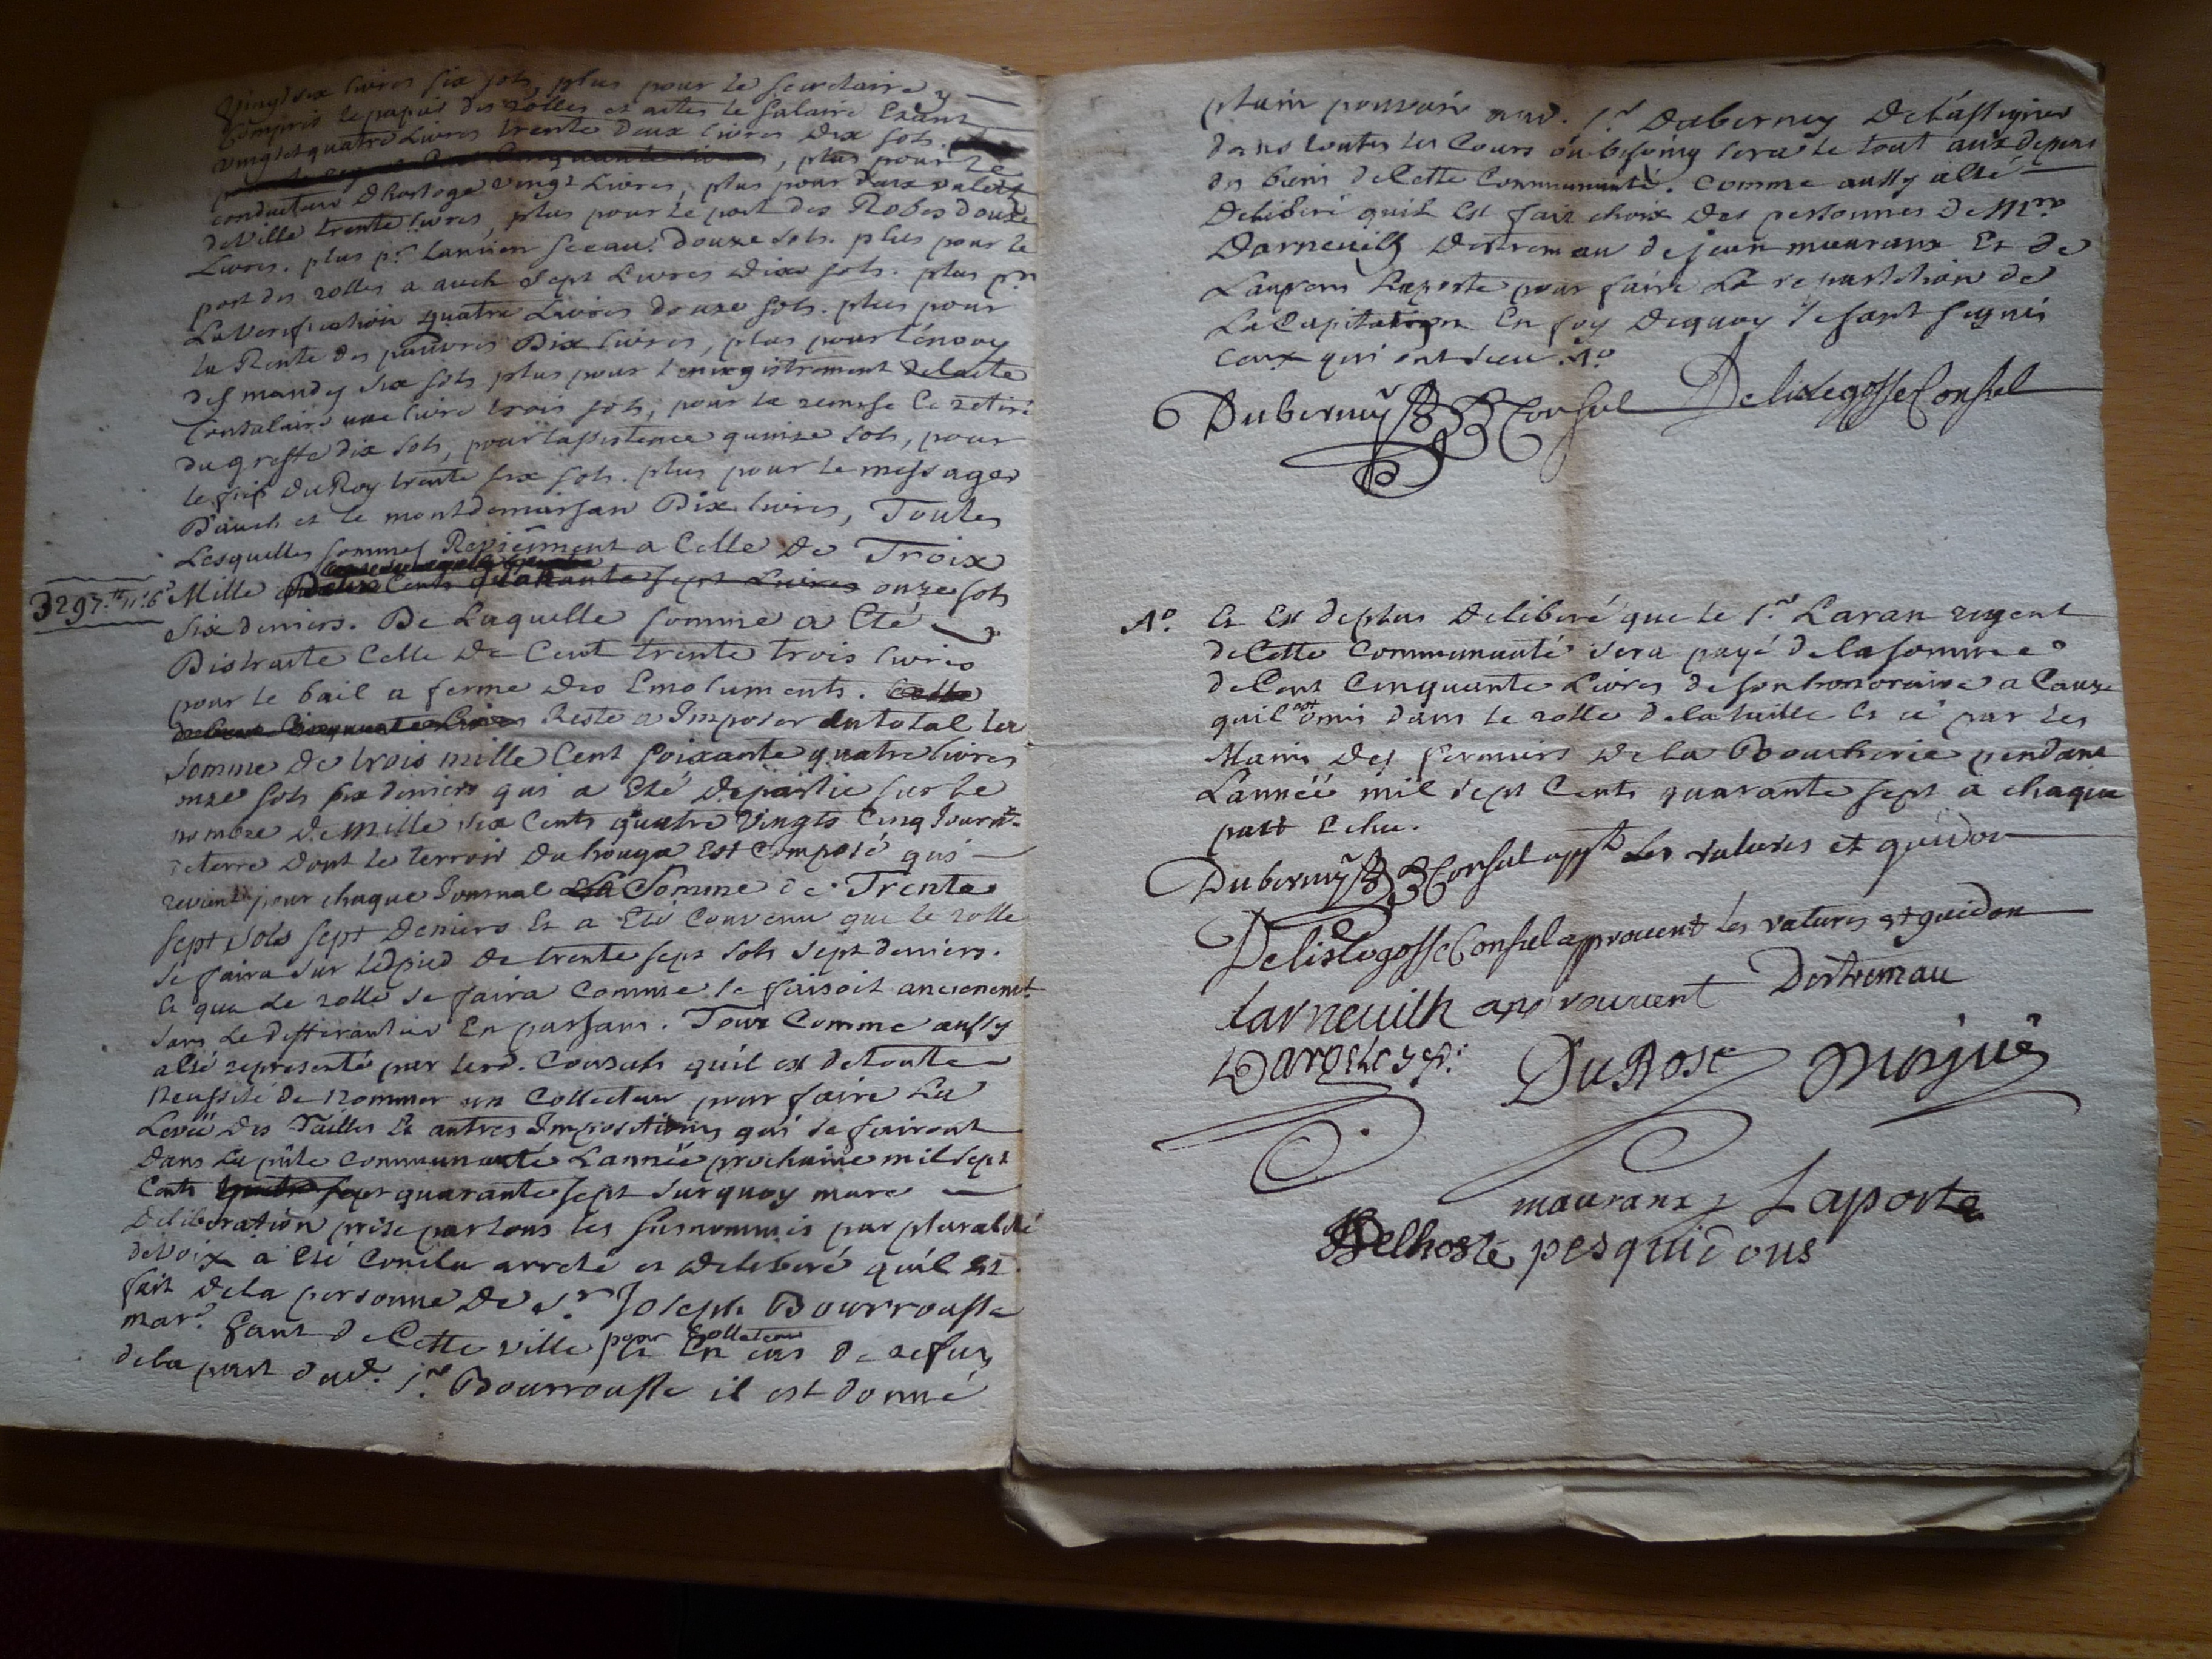 vingt six livres six sols, plus pour le secretaire y
Compris le papier des rolles et actes le salaire Estant
vingt et quatre Livres trente deux livres dix sols.
cinquante livres, plus pour le
conducteur d'horloge vingt Livres, plus pour deux valets
de Ville trente livres, plus pour le port des Robes douze
Livres. plus pr. lancien sceau. douze sols. plus pour le
port des rolles a auch sept Livres dix sols. plus pr.
La verification quatre Livres douze sols. plus pour
la Rente des pauvres Dix livres, plus pour l'envoy
des mandes six sols plus pour l'enregistrement de lacte
Consulaire une livre trois sols, pour la remise le retiré
du greffe dix sols, pour lapistence quinze sols, pour
le fief du Roy trente six sols. plus pour le messager
D'auch et le montdemarsan Dix livres, Toutes
Lesquelles sommes Reviennent a Celle de Troix
3297.tt 11.s 6.d Mille Deux Cents quarante sept Livres onze sols
Six deniers. De Laquelle somme a Eté
Distraite Celle de Cent trente trois livres
pour le bail a ferme des Emoluments. Celle
de Cent Cinquante Livres Reste a Imposer du total la
Somme de trois mille Cent soixante quatre livres
onze sols six deniers qui a Eté départie sur le
nombre de mille six Cents quatre vingts Cinq Journ.
de terre dont le terroir du houga Est Composé qui
revient pour chaque Journal La Somme de Trente
sept sols sept Deniers Et a Eté Convenu que le rolle
se faira sur le pied de trente sept sols sept deniers.
Et que le rolle se faira Comme se faisoit ancienemt.
sans le differantier En parsans. Tout Comme aussy
a Eté representé par lesd. Consuls qu'il est de toute
Neussité de nommer un Collecteur pour faire La
Levée des Tailles Et autres Impositions qui se fairont
Dans La pnte Communauté L'année prochaine mil sept
Cents quarante sept surquoy mure
Deliberation prise par tous les susnommés par pluralité
de voix a Eté Conclu arreté et deliberé qu'il Est
fait de la personne De Sr. Joseph Bourrousse
mar. fant de Cette ville pour Collecteur Et En cas de refus
de la part dud. Sr. Bourrousse il est donné
plain pouvoir aud. Sr. Duberney De l'assigner
dans toutes les Cours ou besoing sera le tout aux depens
des biens de Cette Communauté. Comme aussy a Eté
Deliberé quil Est fait choix des personnes de Mrs.
Darneuilh Dertremau de jean maurans Et de
Laurens Laporte pour faire La repartition de
La Capitation En foy dequoy se sont signés
Ceux qui ont sceu. No.
Duberney Consul Delislegosse Consul
No. Et Est deplus Deliberé que le Sr. Laran regent
de Cette Communauté sera payé de la somme
de Cent Cinquante Livres de son honoraire a Cause
quil est omis dans le rolle de la taille Et ce par les
Mains des fermiers de la Boucherie pendant
L'année mil sept Cents quarante sept a chaque
pact Echu.
Duberney Consul appt les ratures et guidon
Delislegosse Consul aprouvent les ratures et guidon
Larneuilh aprouvent Dertremau
DuBosc
maurans Laporte
Delhoste pesquidous